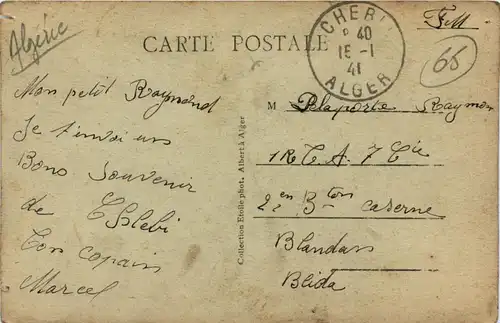 Algérie
CARTE POSTALE
F.M
CHER
40
15 -1
41
ALGER
65
Mon petit Raymond
Je t'envoi un
Bons Souvenir
de
Ton copain
Marcel
Collection Etoile phot. Albert à Alger
M Delaporte Raymon
1 R T A 7 Cie
2en B.ton caserne
Blandan
Blida